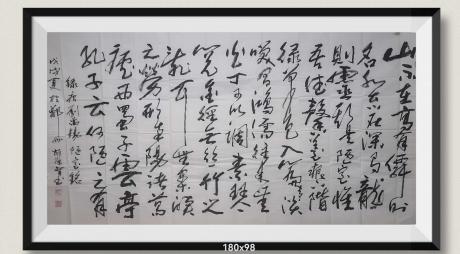 山不在高有僊則
名水不在深有龍
則靈斯是陋室惟
吾德馨苔痕階
綠草色入簾談
笑有鴻儒往來無
白丁可以調素琴
閱金經無絲竹之
亂耳無案牘
之勞形南陽諸葛
廬西蜀子雲亭
孔子云何陋之有
錄唐劉禹錫陋室銘
戊戌夏於
180x98